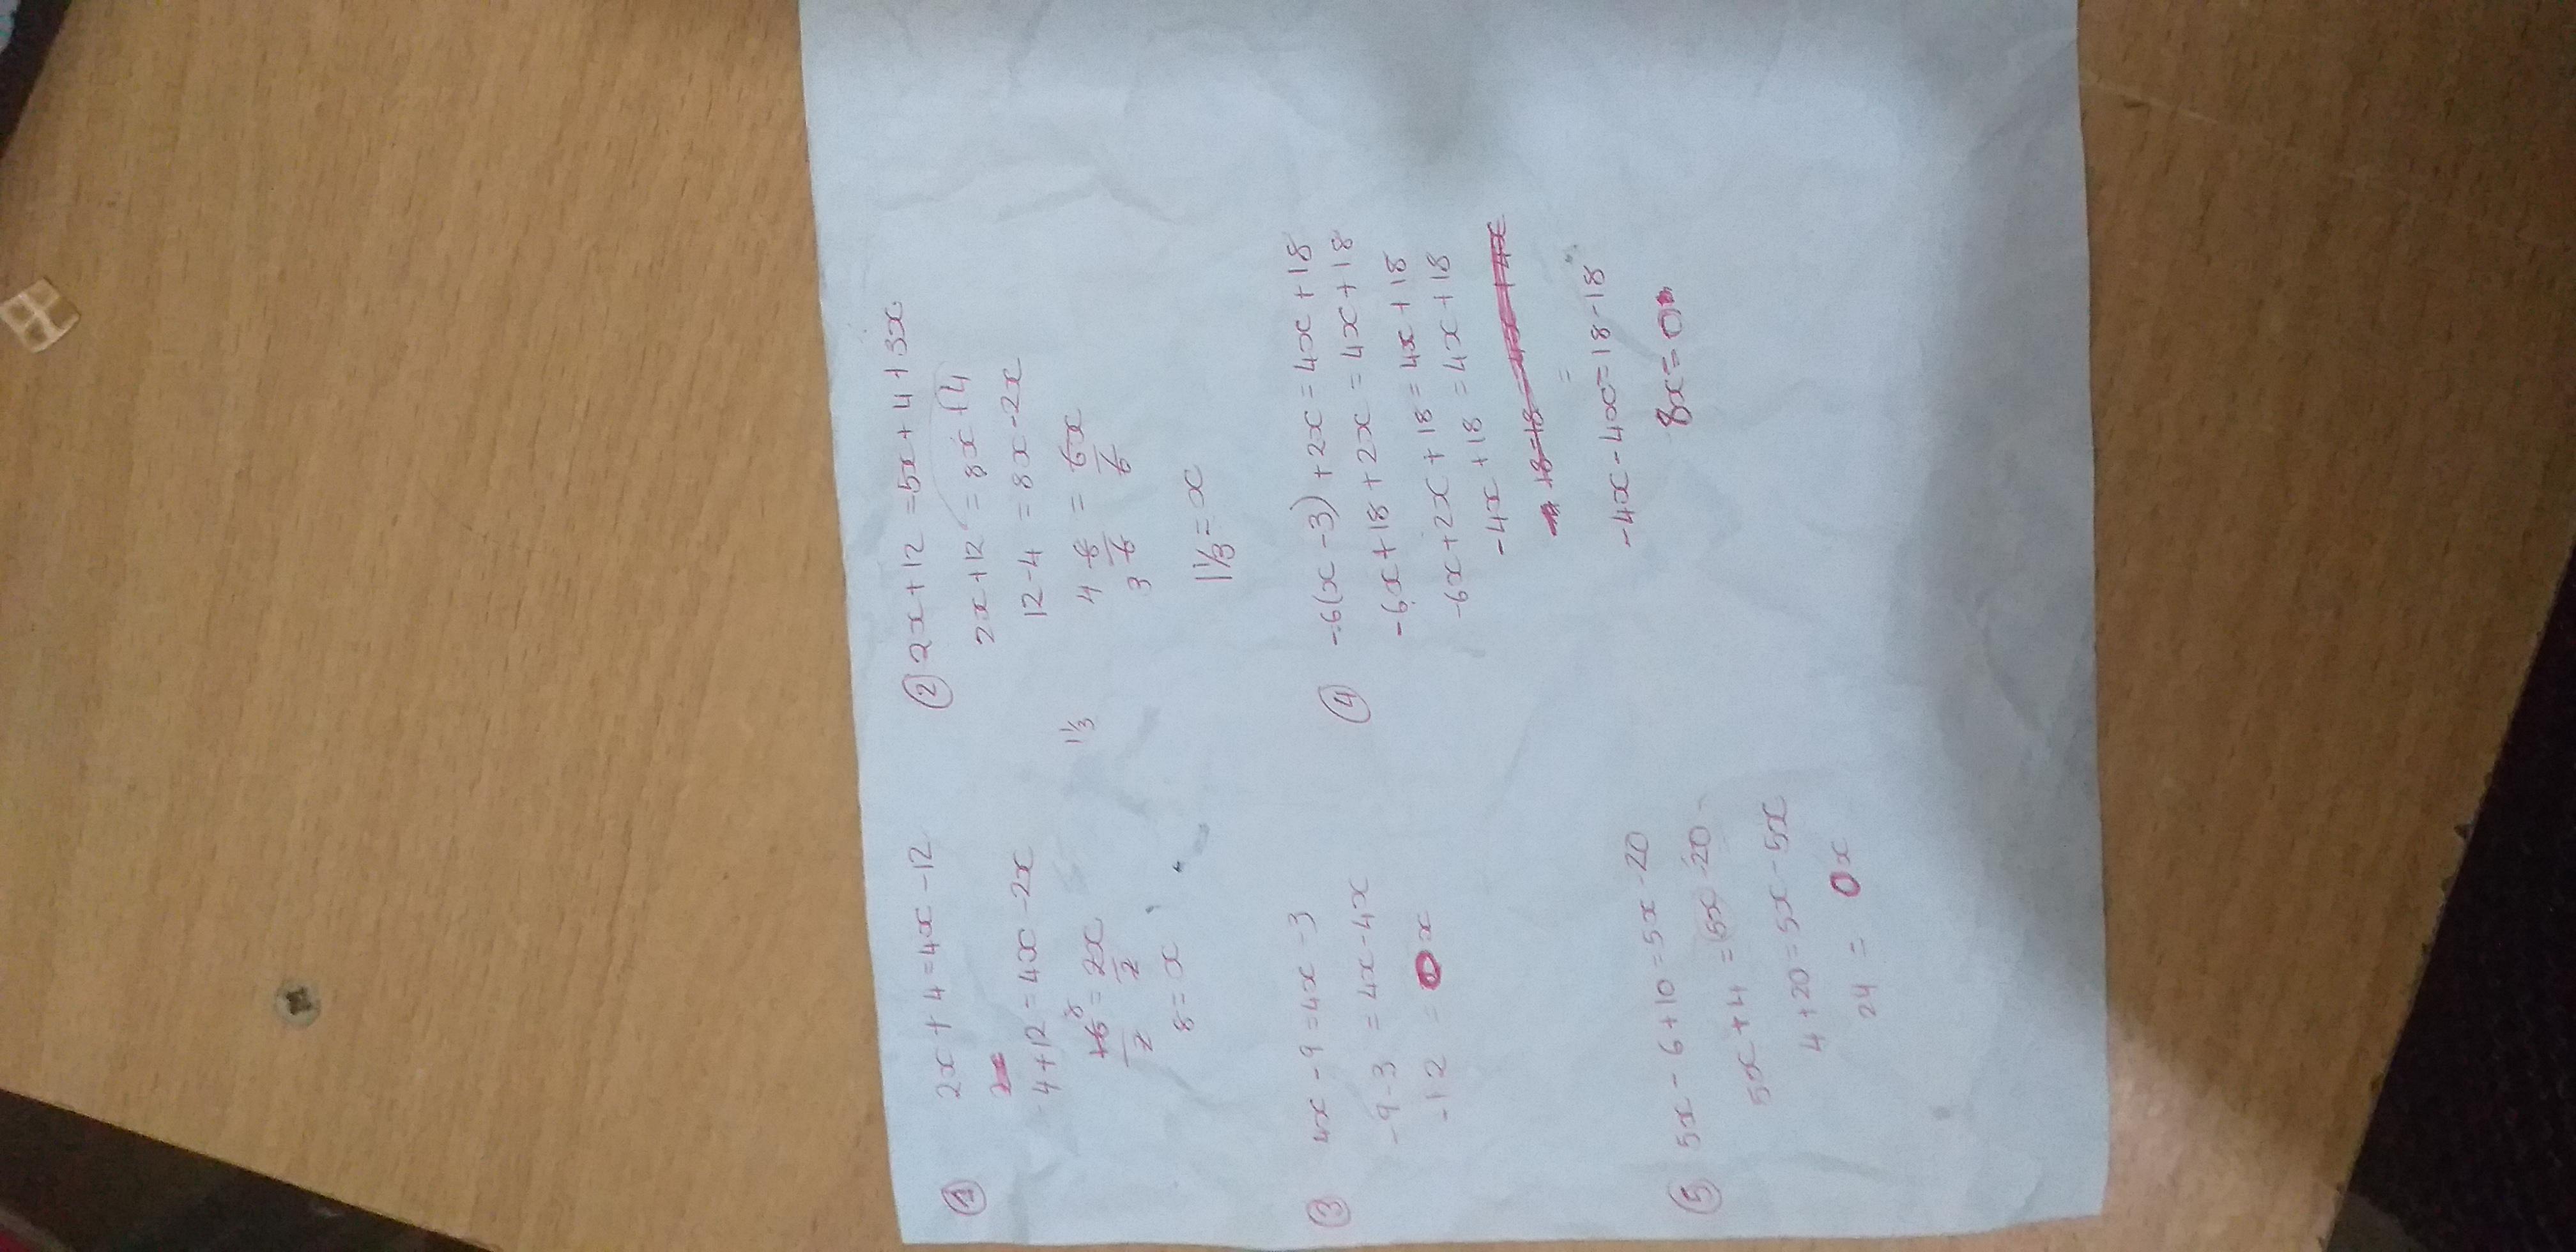 ① 2x + 4 = 4x - 12
2x
4 + 12 = 4x - 2x
16 8 = 2x
2 2
8 = x
② 2x + 12 = 5x + 4 + 3x
2x + 12 = 8x + 4
12 - 4 = 8x - 2x
4 8 = 6x
3 6 6
1 1/3
1 1/3 = x
③ 4x - 9 = 4x - 3
-9 - 3 = 4x - 4x
-12 = 0x
④ -6(x - 3) + 2x = 4x + 18
-6x + 18 + 2x = 4x + 18
-6x + 2x + 18 = 4x + 18
-4x + 18 = 4x + 18
18 - 18 = 4x + 4x
=
-4x - 4x = 18 - 18
8x = 0
⑤ 5x - 6 + 10 = 5x - 20
5x + 4 = 5x - 20
4 + 20 = 5x - 5x
24 = 0x